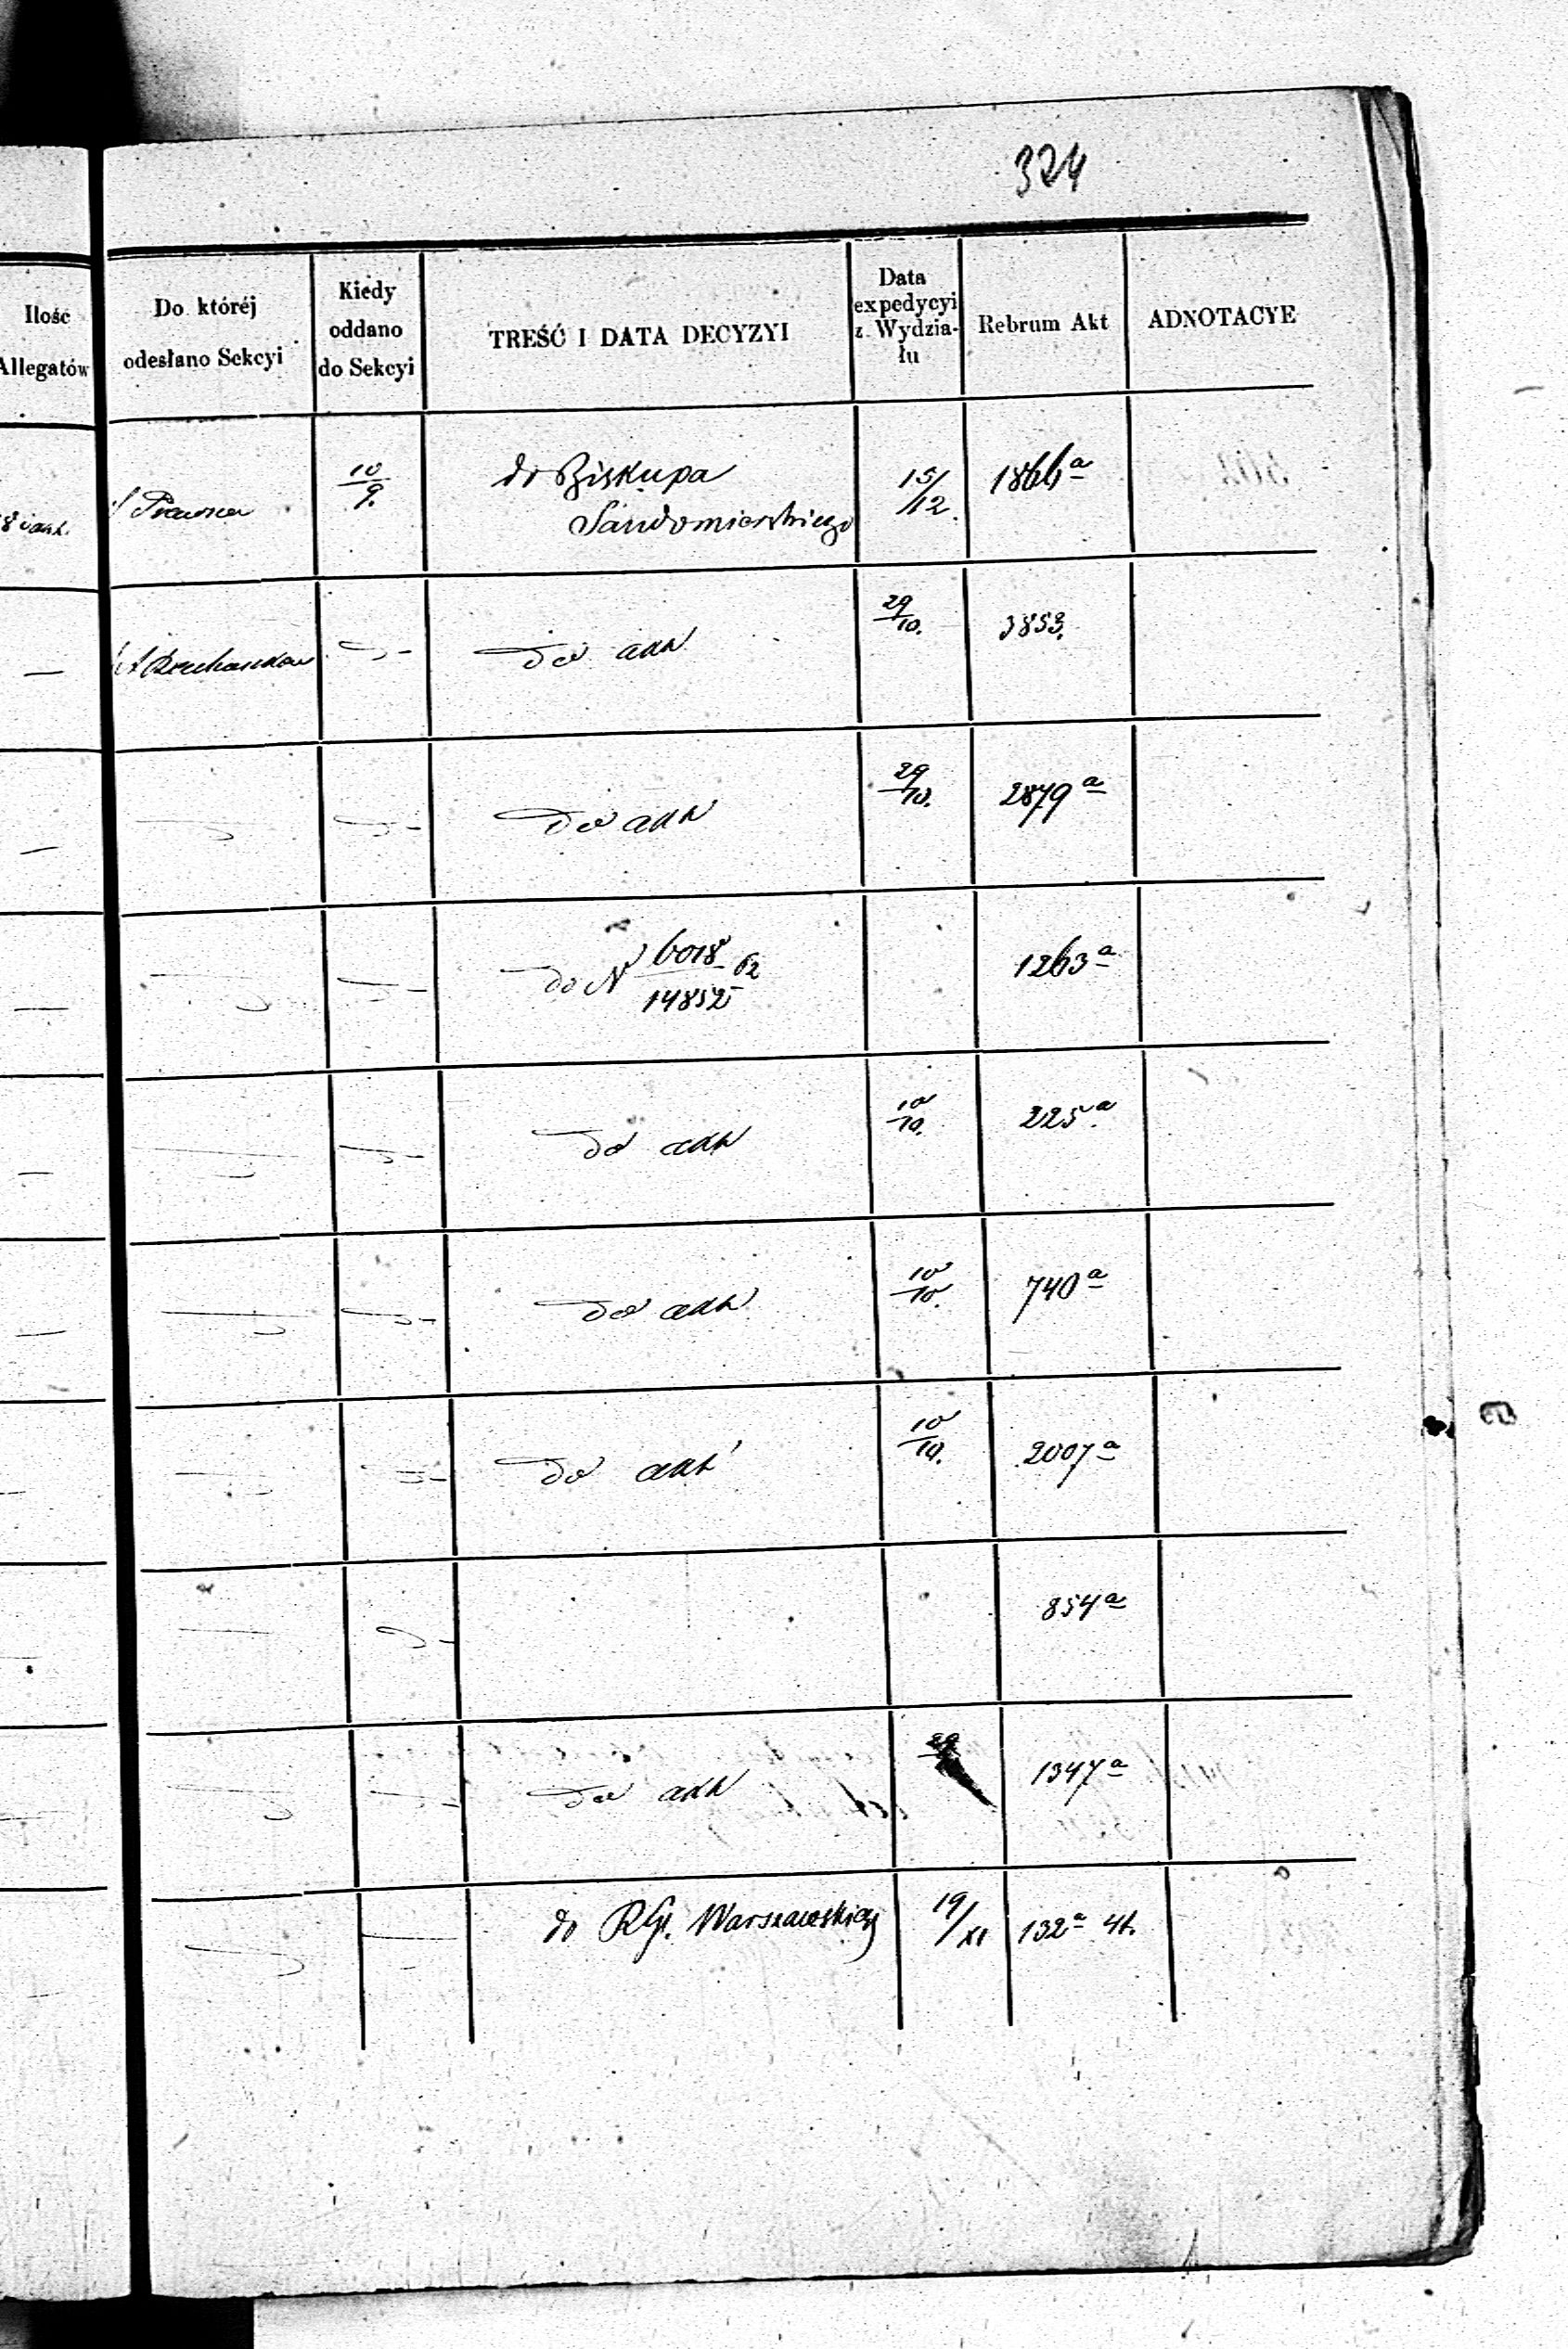 324
Ilość
Allegatów
Do któréj
odesłano Sekcyi
Kiedy
oddano
do Sekcyi
TREŚĆ I DATA DECYZYI
Data
expedycyi
z Wydzia-
łu
Rebrum Akt
ADNOTACYE
10/9.
do Biskupa
Sandomierskiego
15/12.
1866a
do akt
29/10.
3853.
do akt
29/10.
2879a
do N 6018/14852 62
1263a
do akt
10/10.
225a
do akt
10/10.
740a
do akt
10/10.
2007a
854a
do akt
29
1347a
do RGl. Warszawskiej
19/XI
132a 4t.